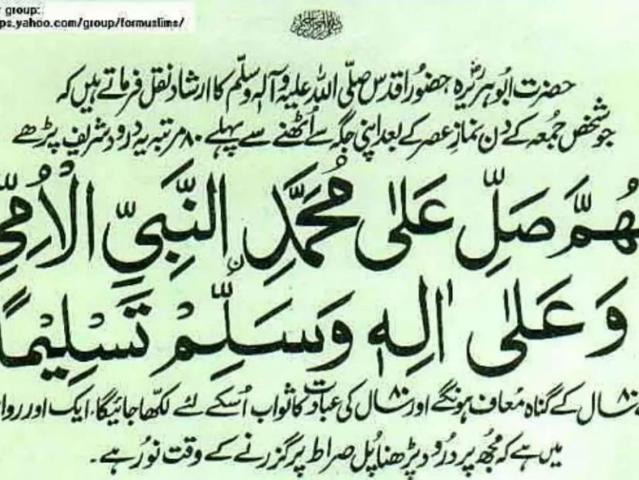 r group:
ps.yahoo.com/group/formuslims/
حضرت ابوہریرہؓ حضور اقدس صلی اللہ علیہ وآلہ وسلم کا ارشاد نقل فرماتے ہیں کہ
جو شخص جمعہ کے دن نماز عصر کے بعد اپنی جگہ سے اُٹھنے سے پہلے ۸۰ مرتبہ یہ درود شریف پڑھے
هُمَّ صَلِّ عَلٰی مُحَمَّدِ نِ النَّبِيِّ الْاُمِّيِّ
وَعَلٰی اٰلِهٖ وَسَلِّمْ تَسْلِيْمًا
۸۰ سال کے گناہ معاف ہونگے اور ۸۰ سال کی عبادت کا ثواب اُسکے لئے لکھا جائیگا، ایک اور روا
میں ہے کہ مجھ پر درود پڑھنا پُل صراط پر گزرنے کے وقت نُور ہے۔